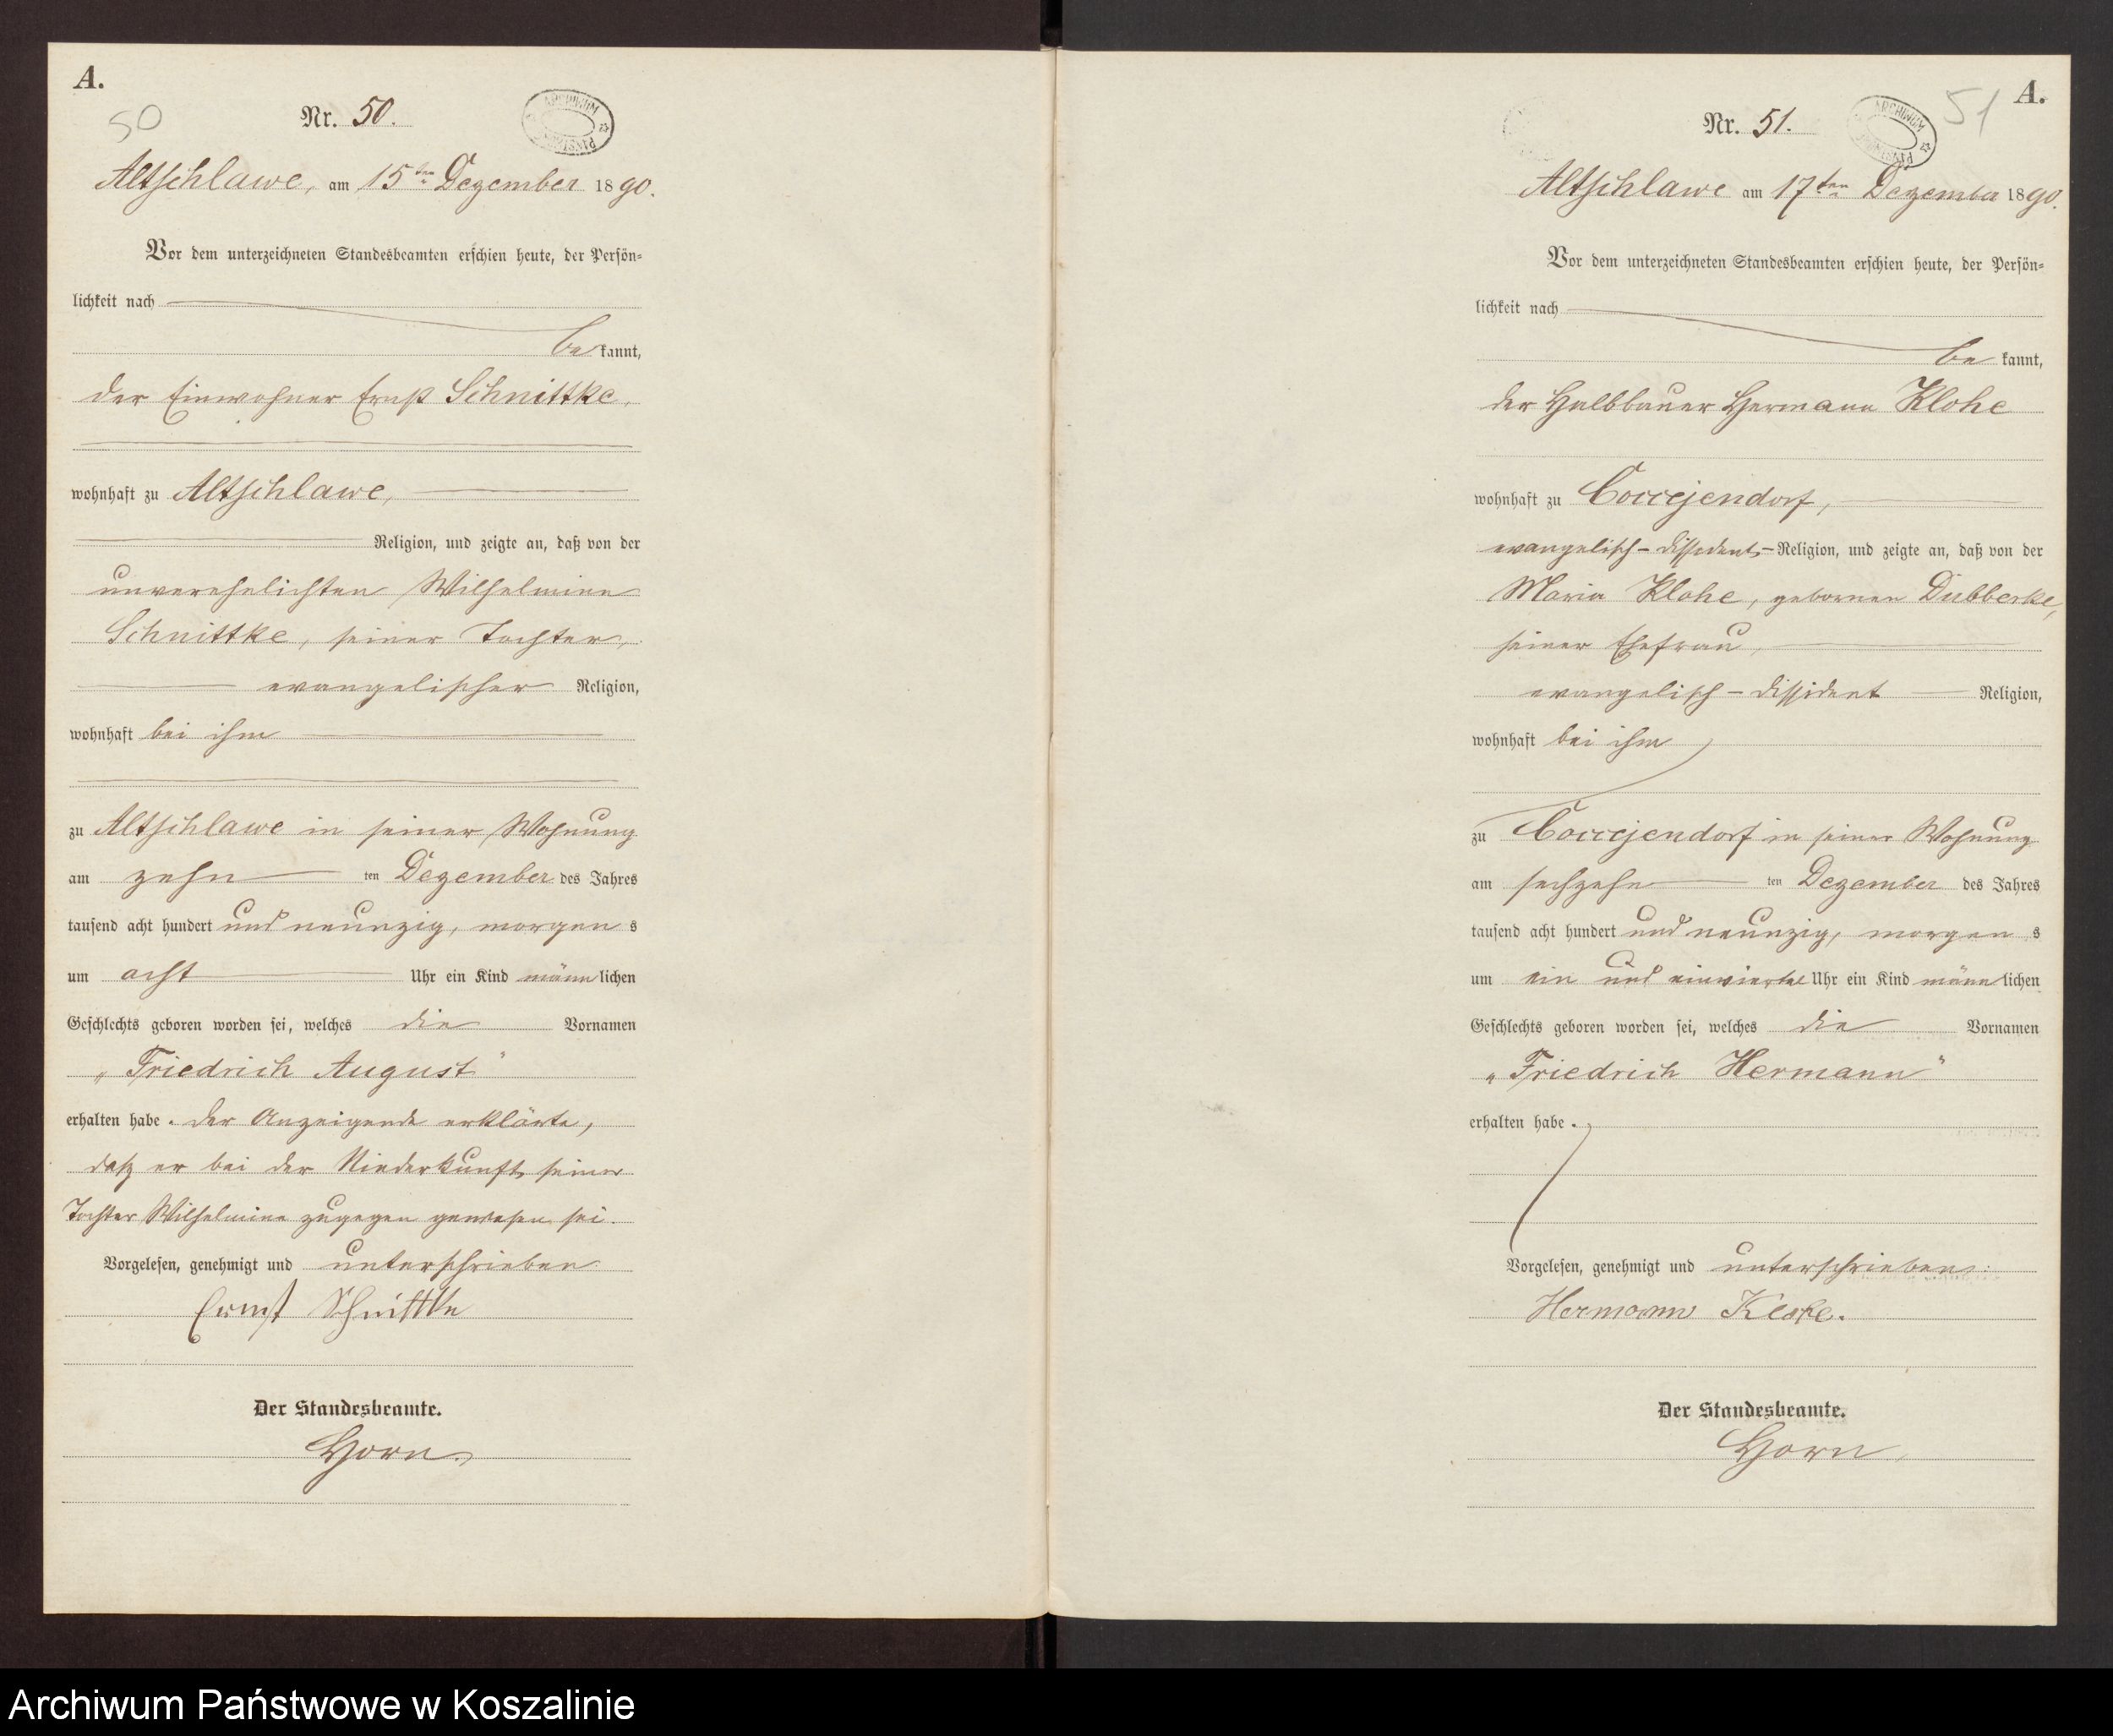 A.
50
Nr. 50.
ARCHIWUM PAŃSTW
Altschlawe, am 15ten Dezember 1890.
Vor dem unterzeichneten Standesbeamten erschien heute, der Persön-
lichkeit nach
be kannt,
der Einwohner Ernst Schnittke,
wohnhaft zu Altschlawe,
Religion, und zeigte an, daß von der
unverehelichten Wilhelmine
Schnittke, seiner Tochter,
evangelischer Religion,
wohnhaft bei ihm
zu Altschlawe in seiner Wohnung
am zehn ten Dezember des Jahres
tausend acht hundert und neunzig, morgen s
um acht Uhr ein Kind männ lichen
Geschlechts geboren worden sei, welches die Vornamen
„Friedrich August“
erhalten habe. Der Anzeigende erklärte,
daß er bei der Niederkunft seiner
Tochter Wilhelmine zugegen gewesen sei.
Vorgelesen, genehmigt und unterschrieben
Ernst Schnittke
Der Standesbeamte.
Horn
A.
51
Nr. 51.
ARCHIWUM PAŃSTW
Altschlawe am 17ten Dezember 1890.
Vor dem unterzeichneten Standesbeamten erschien heute, der Persön-
lichkeit nach
be kannt,
der Halbbauer Hermann Klohe
wohnhaft zu Coccejendorf,
evangelisch-dissident- Religion, und zeigte an, daß von der
Maria Klohe, gebornen Dubberke,
seiner Ehefrau,
evangelisch-dissident Religion,
wohnhaft bei ihm
zu Coccejendorf in seiner Wohnung
am sechzehn ten Dezember des Jahres
tausend acht hundert und neunzig, morgen s
um ein und einviertel Uhr ein Kind männ lichen
Geschlechts geboren worden sei, welches die Vornamen
„Friedrich Hermann“
erhalten habe.
Vorgelesen, genehmigt und unterschrieben:
Hermann
Der Standesbeamte.
Horn
Archiwum Państwowe w Koszalinie